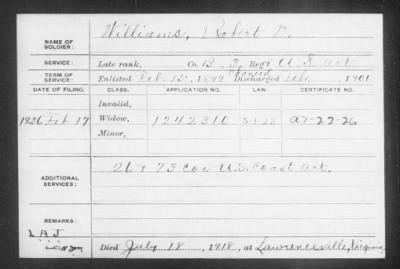 NAME OF SOLDIER: Williams, Robert D.
SERVICE: Late rank, Co. B, 3, Reg't U S Art
TERM OF SERVICE: Enlisted Feb 15, 1899 Discharged Feb, 1901
DATE OF FILING. CLASS. APPLICATION NO. LAW. CERTIFICATE NO.
Invalid,
1926 Feb 17 Widow, 1242310 A7-22-26
Minor,
ADDITIONAL SERVICES: 269 73 Co U.S. Coast Art.
REMARKS:
Died July 18, 1918, at Lawrenceville, Virginia